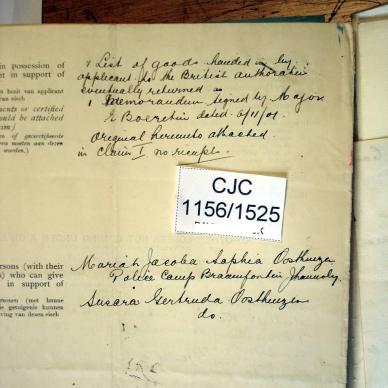 in possession of
st in support of
in bezit van applicant
van eisch
ments or certified
ould be attached
im)
of gecertifieerde
ven moeten aan deze
worden.)
1 List of goods handed in by
applicant to the British authorities
eventually returned as
1 Memorandum signed by Major
dated 6/11/01.
Original herewith attached
in Claim I no receipt.
CJC
1156/1525
ersons (with their
) who can give
in support of
ersonen (met hunne
getuigenis kunnen
ving van dezen eisch
Mariah Jacoba Sophia Oosthuizen
Police Camp Braamfontein Jhannesbg.
Susara Gertruda Oosthuizen
do.